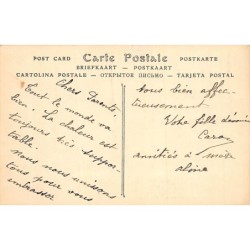 POST CARD Carte Postale POSTKARTE
BRIEFKAART - POSTKAART
CARTOLINA POSTALE - ОТКРЫТОЕ ПИСЬМО - TARJETA POSTAL
Chers Parents,
Tout le monde va
bien. La chaleur est
toujours très suppor-
table.
nous nous unissons
tous pour vous
embrasser
tous bien affec-
tueusement
Votre fille dévouée
amitiés à